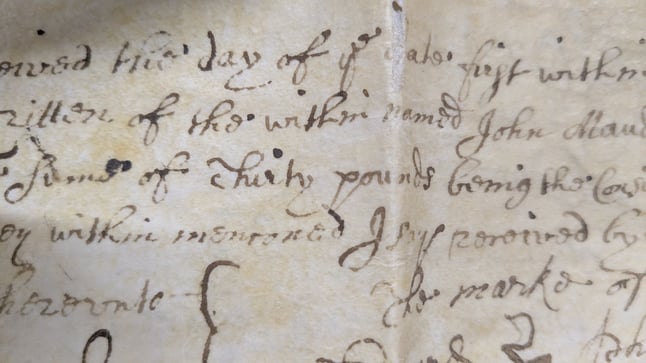 eived the day of ye date first within
ritten of the within named John Maud
sume of Thirty pounds being the Consi
ey within menconed I say received by
hereunto The marke of
Joh